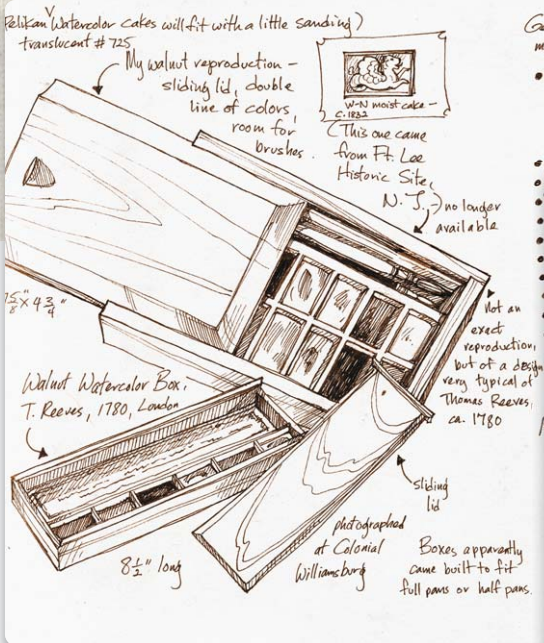 Pelikan Watercolor cakes will fit with a little sanding)
translucent #725
My walnut reproduction -
sliding lid, double
line of colors,
room for
brushes.
W-N moist cake -
c. 1832
(This one came
from Ft. Lee
Historic Site,
N.J., -) no longer
available
Not an
exact
reproduction,
but of a design
very typical of
Thomas Reeves,
ca. 1780
5/8 x 4 3/4"
Walnut Watercolor Box,
T. Reeves, 1780, London
8 1/2" long
sliding
lid
photographed
at Colonial
Williamsburg
Boxes apparently
came built to fit
full pans or half pans.